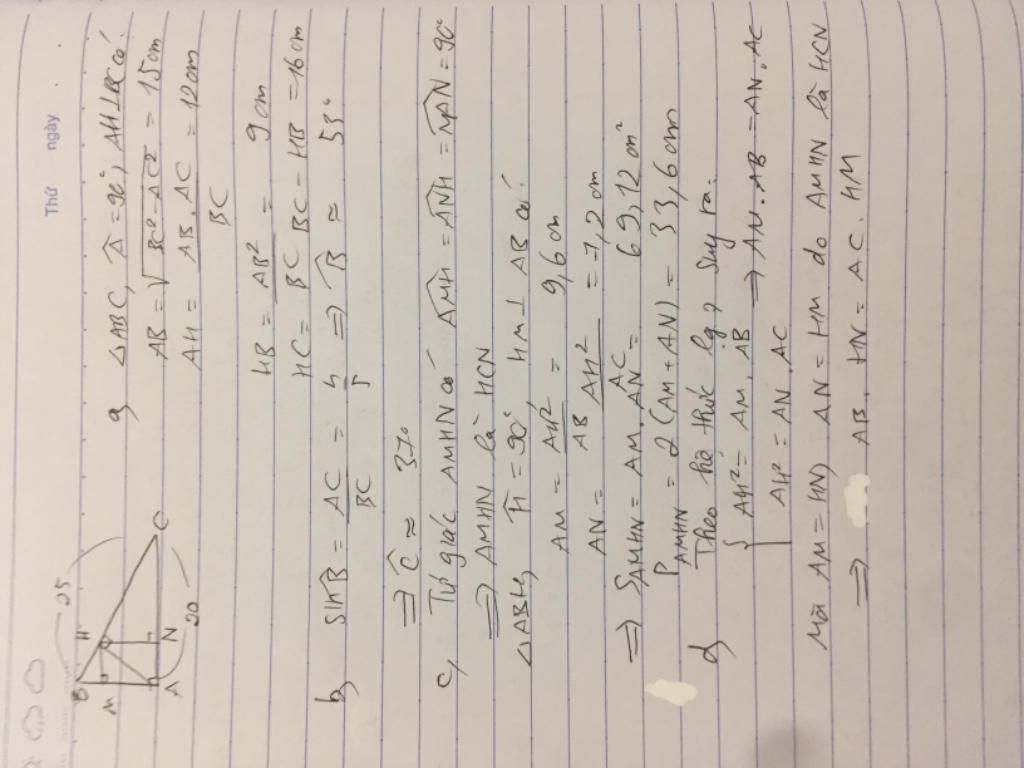 Thứ ngày
B
25
H
M
A
N
C
20
a, ΔABC, Â = 90°, AH⊥BC có:
AB = √BC² - AC² = 15cm
AH = AB.AC / BC = 12cm
HB = AB² / BC = 9cm
HC = BC - HB = 16cm
b, SinB = AC / BC = 4 / 5 ⇒ B̂ ≈ 53°
⇒ Ĉ ≈ 37°
c, Tứ giác AMHN có AMH = ANH = MAN = 90°
⇒ AMHN là HCN
ΔABH, Ĥ = 90°, HM⊥AB có:
AM = AH² / AB = 9,6cm
AN = AH² / AC = 7,2cm
⇒ SAMHN = AM.AN = 69,12cm²
PAMHN = 2(AM+AN) = 33,6cm
d, Theo hệ thức lg? Suy ra:
{ AH² = AM.AB
AH² = AN.AC ⇒ AM.AB = AN.AC
Mà AM = HN, AN = HM do AMHN là HCN
⇒ AB.HN = AC.HM